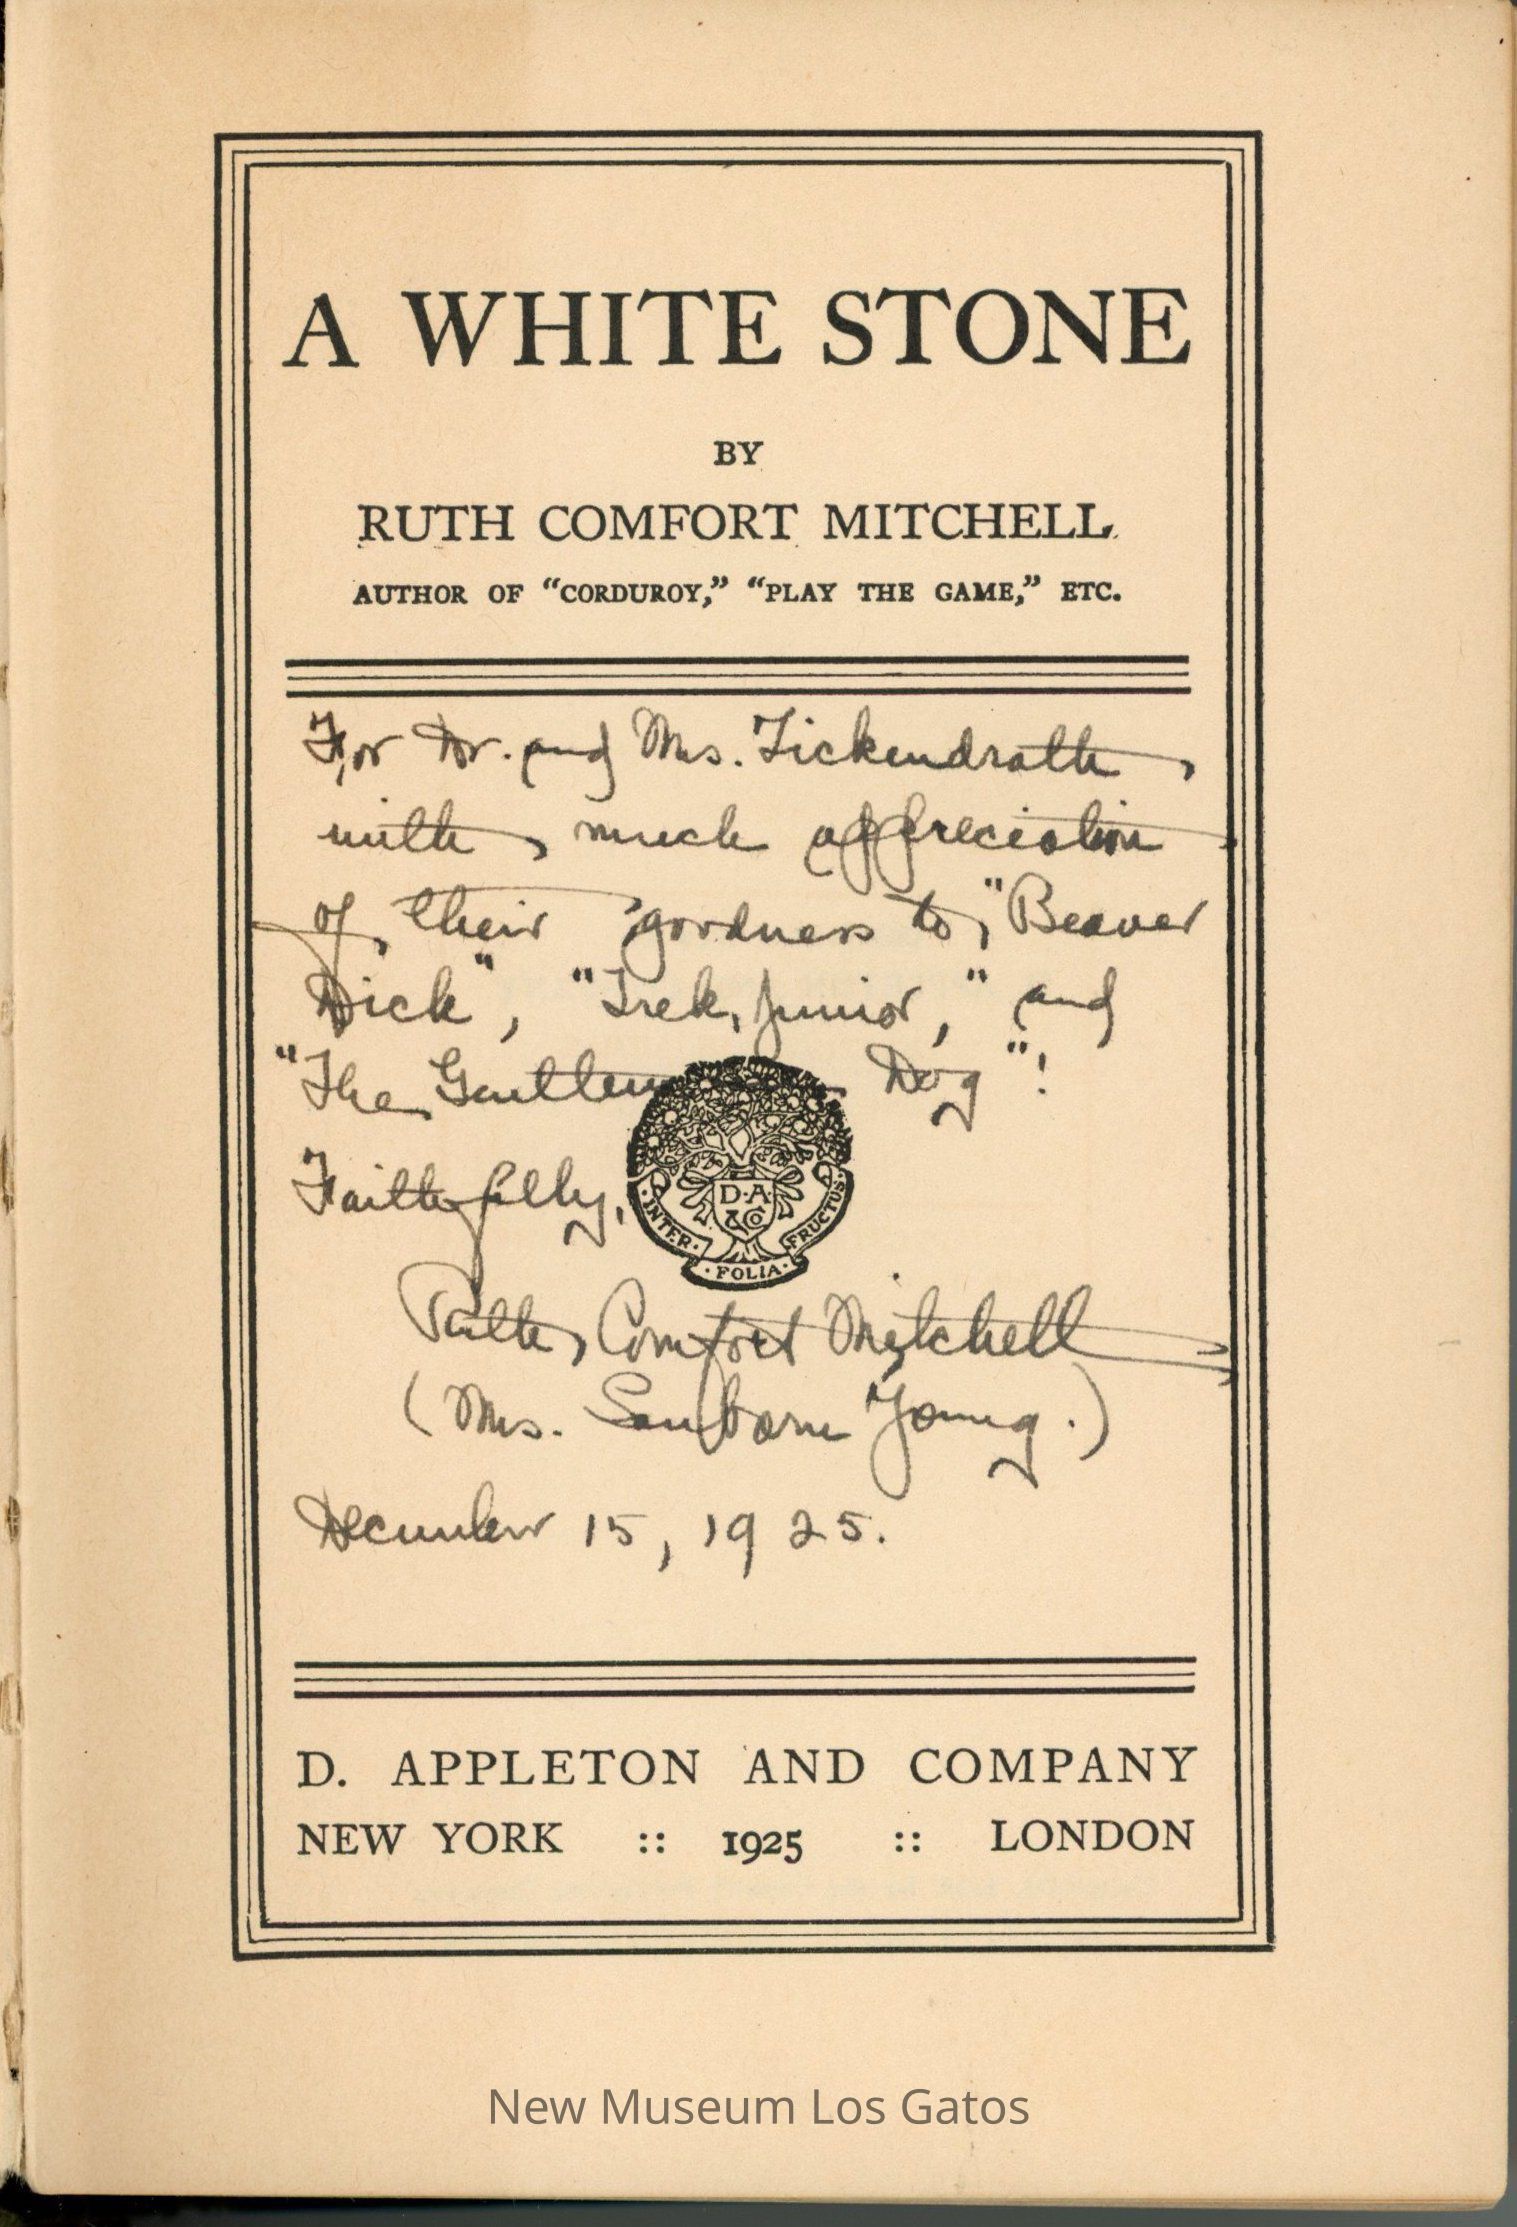 A WHITE STONE
BY
RUTH COMFORT MITCHELL
AUTHOR OF “CORDUROY,” “PLAY THE GAME,” ETC.
For Dr. and Mrs.
with much appreciation
of their goodness to "Beaver
Dick", "Trek, Junior," and
"The Dog"!
Faithfully,
Ruth Comfort Mitchell
(Mrs. Sanborn Young.)
December 15, 1925.
D·A·
&Co
·INTER·
·FOLIA·
FRUCTUS·
D. APPLETON AND COMPANY
NEW YORK :: 1925 :: LONDON
New Museum Los Gatos